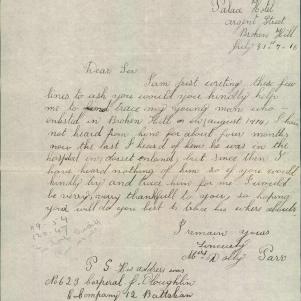 Palace Hotel
Argent Street
Broken Hill
July 31st-7-16
Dear Sir
I am just writing these few
lines to ask you would you kindly help
me to trace my young man who
enlisted in Broken Hill in august 1914, I have
not heard from him for about four months
now the last I heard of him he was in the
hospital in dorset england, but since then I
have heard nothing of him so if you would
kindly try and trace him for me I would
be very, very thankfull to you, so hoping
you will do your best to trace his where abouts
I remain yours
Sincerely
Dolly Parr
P S His address was
No 623 Corporal J. Cloughlin
Company 12 Battalian